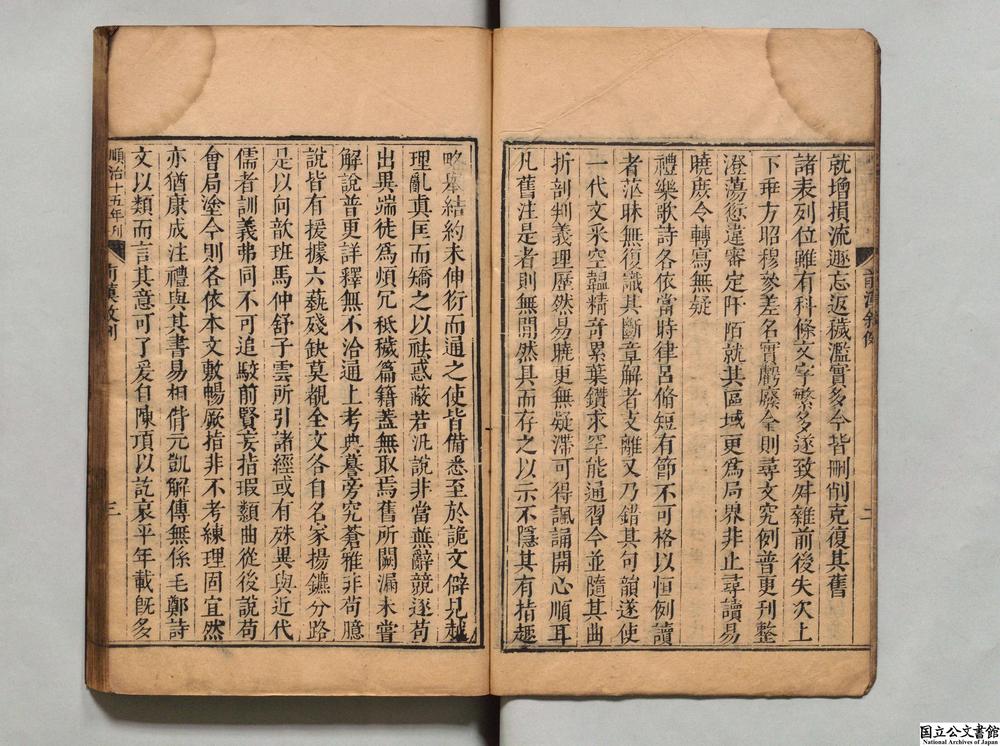 就增損流遯忘返穢濫實多今皆刪削克復其舊
諸表列位雖有科條文字繁多遂致舛雜前後失次上
下乖方昭穆參差名實虧廢今則尋文究例普更刊整
澄蕩愆違審定阡陌就其區域更為局界非止尋讀易
曉庶令轉寫無疑
禮樂歌詩各依當時律呂脩短有節不可格以恒例讀
者茫昧無復識其斷章解者支離又乃錯其句韻遂使
一代文采空韞精竒累葉鑽求罕能通習今並隨其曲
折剖判義理歷然易曉更無疑滯可得諷誦開心順耳
凡舊注是者則無間然具而存之以示不隱其有指趣
略舉結約未伸衍而通之使皆備悉至於詭文僻見越
理亂真匡而矯之以祛惑蔽若汎說非當蕪辭競逐苟
出異端徒為煩冗秪穢篇籍蓋無取焉舊所闕漏未嘗
解說普更詳釋無不洽通上考典謩旁究蒼雅非苟臆
說皆有援據六蓺殘缺莫覩全文各自名家揚鑣分路
是以向歆班馬仲舒子雲所引諸經或有殊異與近代
儒者訓義弗同不可追駮前賢妄指瑕纇曲從後說苟
會扃塗今則各依本文敷暢厥指非不考練理固宜然
亦猶康成注禮與其書易相偝元凱解傳無係毛鄭詩
文以類而言其意可了爰自陳項以訖哀平年載旣多
前漢敘例
二
順治十五年刊
前漢敘例
三
国立公文書館
National Archives of Japan